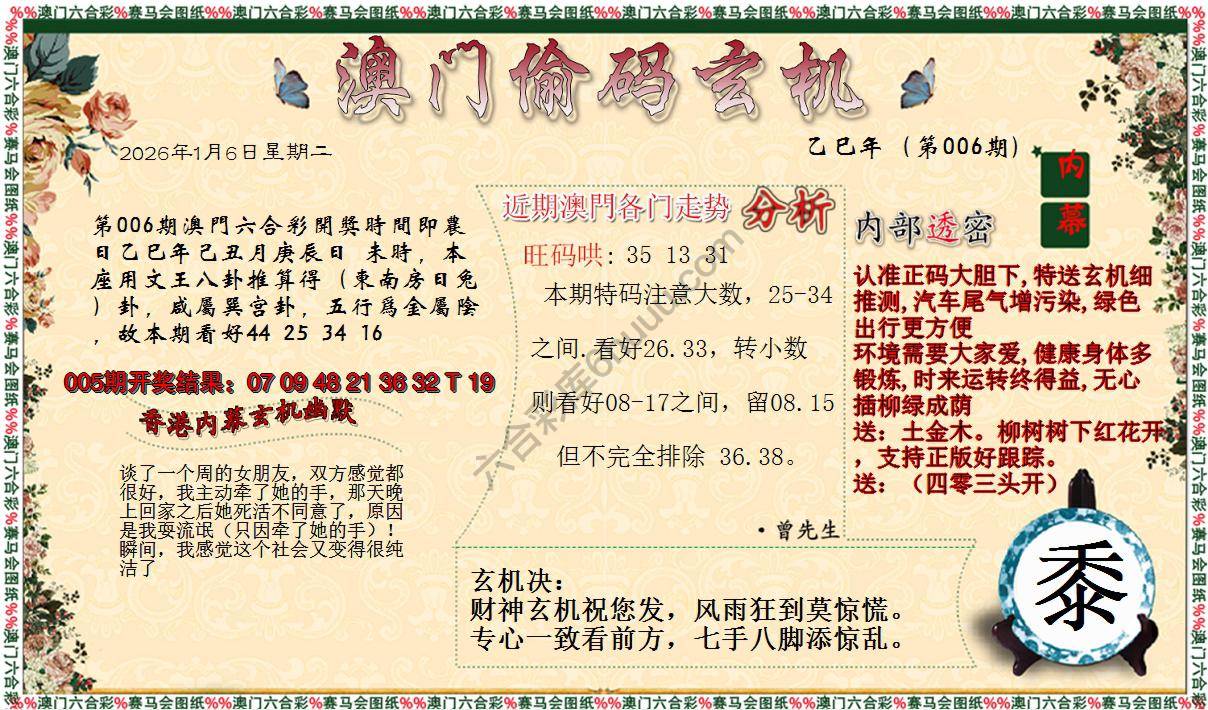 %%澳门六合彩%赛马会图纸%%澳门六合彩%赛马会图纸%%澳门六合彩%赛马会图纸%%澳门六合彩%赛马会图纸%%澳门六合彩%赛马会图纸%%澳门六合彩%赛马会图纸%%
澳门偷码玄机
2026年1月6日星期二
乙巳年（第006期）
内幕
第006期澳門六合彩開獎時間即農
日乙巳年己丑月庚辰日 未時，本
座用文王八卦推算得（東南房日兔
）卦，咸屬巽宫卦，五行爲金屬陰
，故本期看好44 25 34 16
005期开奖结果：07 09 48 21 36 32 T 19
香港内幕玄机幽默
谈了一个周的女朋友，双方感觉都
很好，我主动牵了她的手，那天晚
上回家之后她死活不同意了，原因
是我耍流氓（只因牵了她的手）！
瞬间，我感觉这个社会又变得很纯
洁了
近期澳門各门走势 分析
旺码哄: 35 13 31
本期特码注意大数，25-34
之间.看好26.33，转小数
则看好08-17之间，留08.15
但不完全排除 36.38。
·曾先生
内部透密
认准正码大胆下,特送玄机细
推测,汽车尾气增污染,绿色
出行更方便
环境需要大家爱,健康身体多
锻炼,时来运转终得益,无心
插柳绿成荫
送：土金木。柳树树下红花开
，支持正版好跟踪。
送：（四零三头开）
玄机决：
财神玄机祝您发，风雨狂到莫惊慌。
专心一致看前方，七手八脚添惊乱。
黍
%%澳门六合彩%赛马会图纸%%澳门六合彩%赛马会图纸%%澳门六合彩%赛马会图纸%%澳门六合彩%赛马会图纸%%澳门六合彩%赛马会图纸%%澳门六合彩%赛马会图纸%%